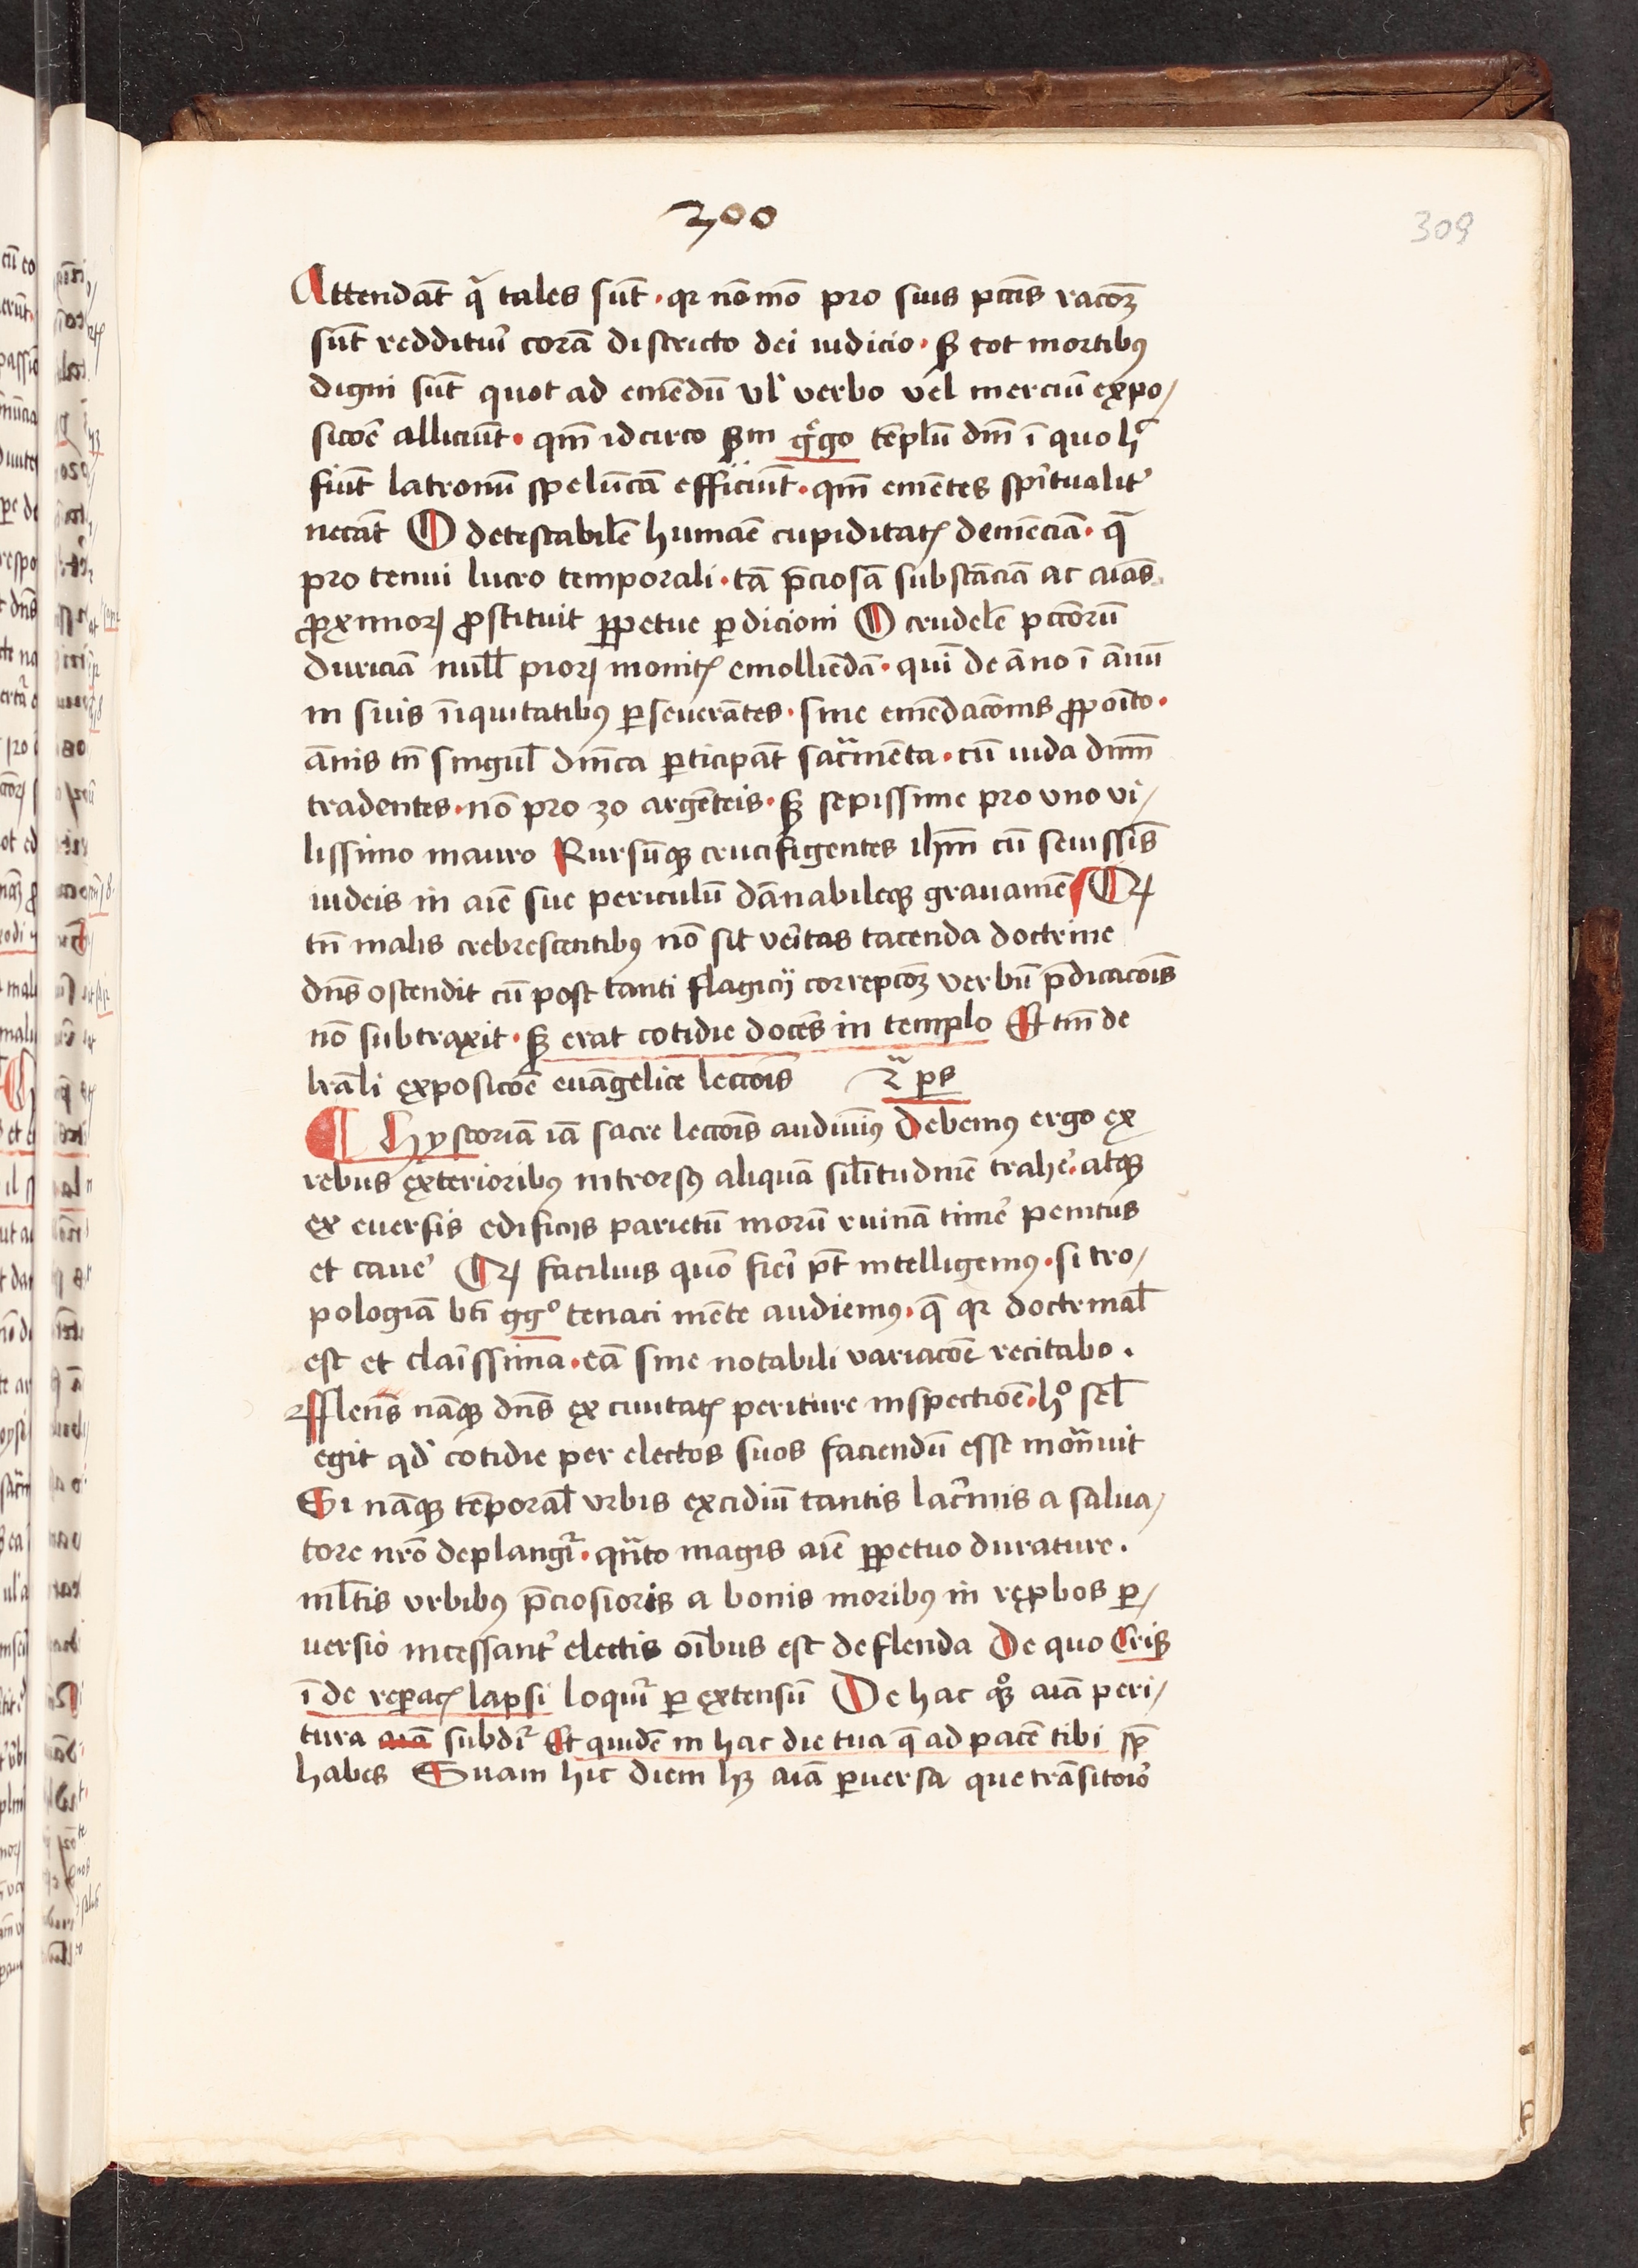 300
309
Attendāt q̄ tales sūt · qr nōmō pro suis pctīs racōꝫ
sūt reddituͥ corā districto dei iudicio · sꝫ tot mortibꝰ
digni sūt quot ad emēdū vl̓ verbo vel merciū expo/
sicōē alliciūt · qm̄ idcirco scdm gͦgo tēplū dm̄ ī quo hͨ
fiūt latronū spelūcā efficiūt · qm̄ emētes spīrtualit̓
necāt O detestabilē humāē cupiditatꝭ demēciā · q̄
pro tenui lucro temporali · tā p̄ciosā substāciā ac aīas
ꝓximoꝝ ꝓstituit ꝑpetue ꝑdicioni O crudelē pctōrū
duriciā null̄ pioꝝ monitꝭ emolliēdā · qui de āno ī ānū
in suis īiquitatibꝰ ꝑseuerātes · sine emēdacōnis ꝓpoīto ·
ānis tn̄ singul̄ dn̄ica ꝑticipāt sacͣmēta · cū iuda dn̄m
tradentes · nō pro 30 argēteis · sꝫ sepissime pro vno vi/
lissimo mauro Rursūqꝫ crucifigentes ihm̄ cū seuissīs
iudeis in aīe sue periculū dānabileqꝫ grauamē Qꝛ
tn̄ malis crebrescentibꝰ nō sit veͥtas tacenda doctrine
dn̄s ostendit cū post tanti flagicij correpcōꝫ verbū p̄dicacōīs
nō subtraxit · sꝫ erat cotidie docēs in templo Et tm̄ de
lr̄ali exposicōē euāgelice lectōīs 2ͣ ps
¶ Hystoriā iā sacre lectōīs audiuimꝰ Debemꝰ ergo ex
rebus exterioribꝰ introrsꝰ aliquā silītudinē trahe̓ · atqꝫ
ex euersis edificijs parietū morū ruinā time̓ penitus
et caue̓ Qꝛ facilius quō fieͥ pt̄ intelligemꝰ · si tro/
pologiā bt̄i ggͦ tenaci mēte audiemꝰ · q̄ qr doctrinal̄
est et claīssima · eā sine notabili variacōē recitabo .
Fflens nāqꝫ dn̄s ex ciuitatꝭ periture inspectiōē · hͦ sel̄
egit qd̓ cotidie per electos suos faciendū esse monͣuit
Si nāqꝫ tēporal̄ vrbis excidiū tantis lacͥmis a salua/
tore nrō deplangiͬ · qͣnto magis aīe ꝑpetuo durature .
ml̄tis vrbibꝰ p̄ciosioris a bonis moribꝰ in reprbos ꝑ/
uersio incessant̓ electis oībus est deflenda De quo Cris̄
ī de reꝑacꝭ lapsi loquiͬ ꝑ extensū De hac qͦꝫ aīā peri/
tura aīā subdiͬ Et quidē in hac die tua q̄ ad pacē tibi sp̄
habes Suam hic diem hꝫ aīā ꝑuersa que trāsitoͥo